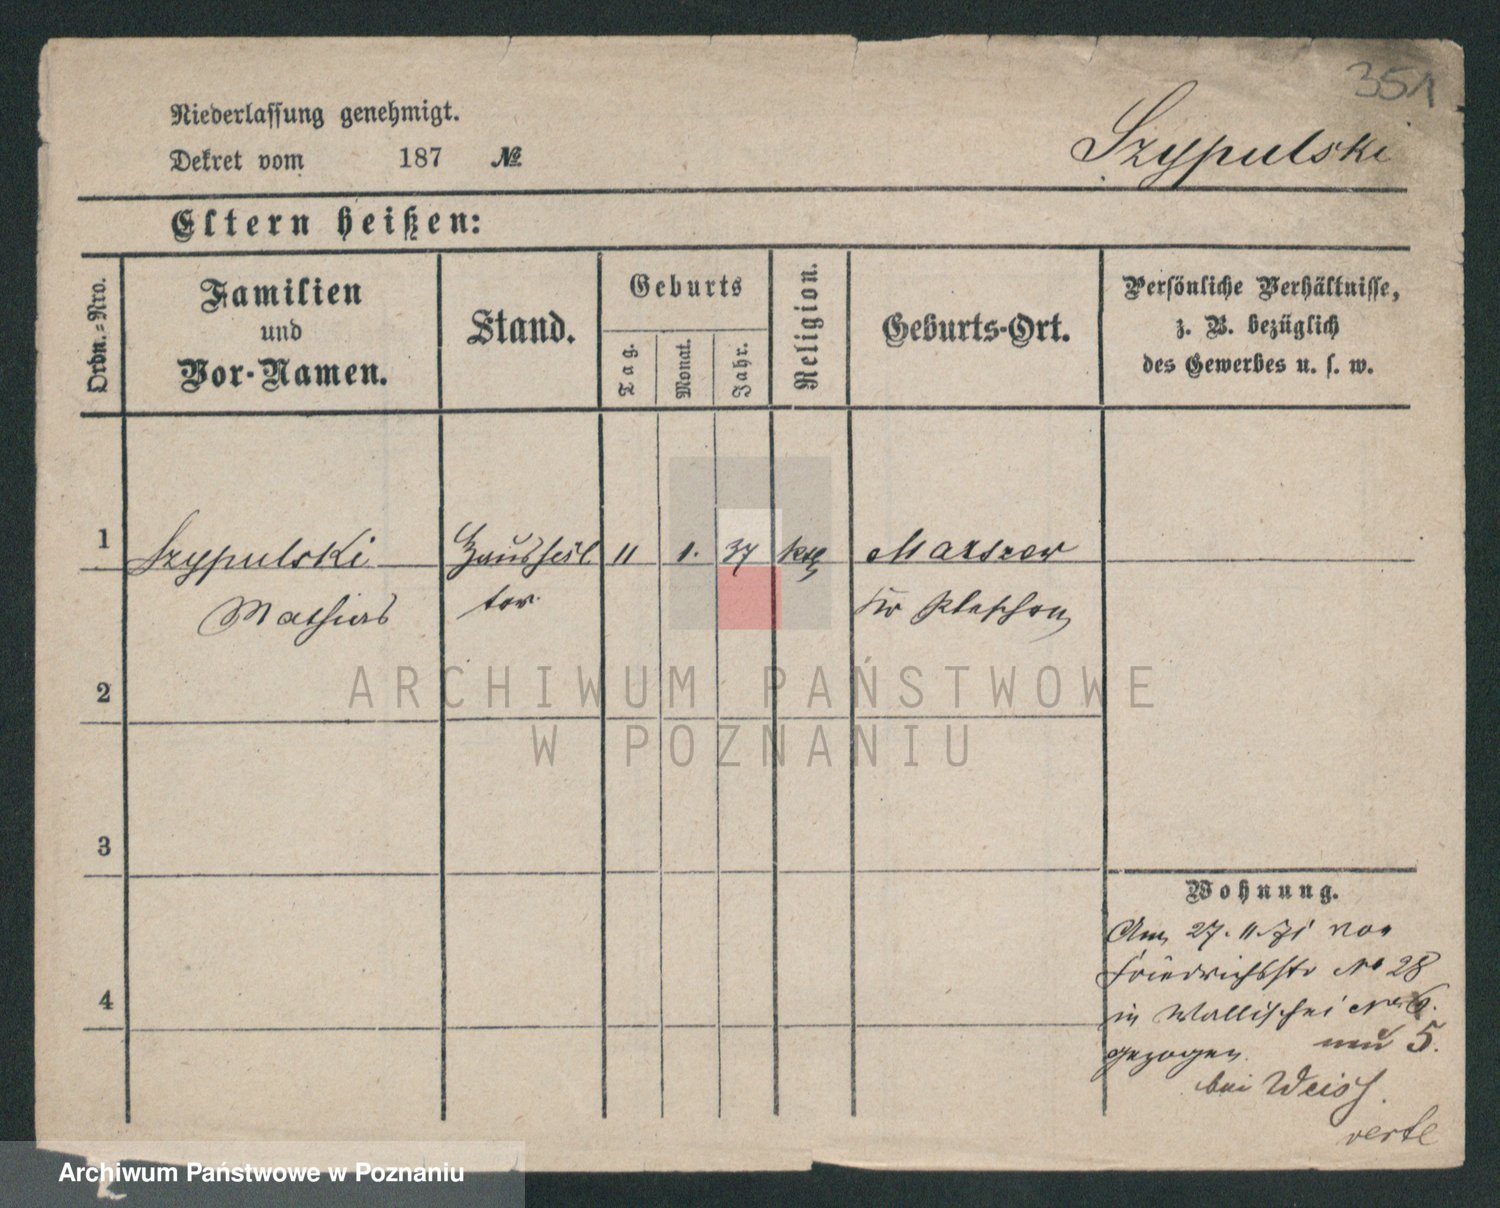 351
Niederlassung genehmigt.
Dekret vom 187 №
Szypulski
Eltern heißen:
Ordn.-Nro.
Familien
und
Vor-Namen.
Stand.
Geburts
Tag.
Monat.
Jahr.
Religion.
Geburts-Ort.
Persönliche Verhältnisse,
z. B. bezüglich
des Gewerbes u. s. w.
1 Szypulski 11 1. 37 kth Marszew
Mathias tor Kr Pleschen
ARCHIWUM PAŃSTWOWE
W POZNANIU
2
3
4
Wohnung.
Am 27. 11. 71 von
Friedrichsstr No 28
in Wallischei
gezogen. neu 5.
bei Weiss.
verte
Archiwum Państwowe w Poznaniu